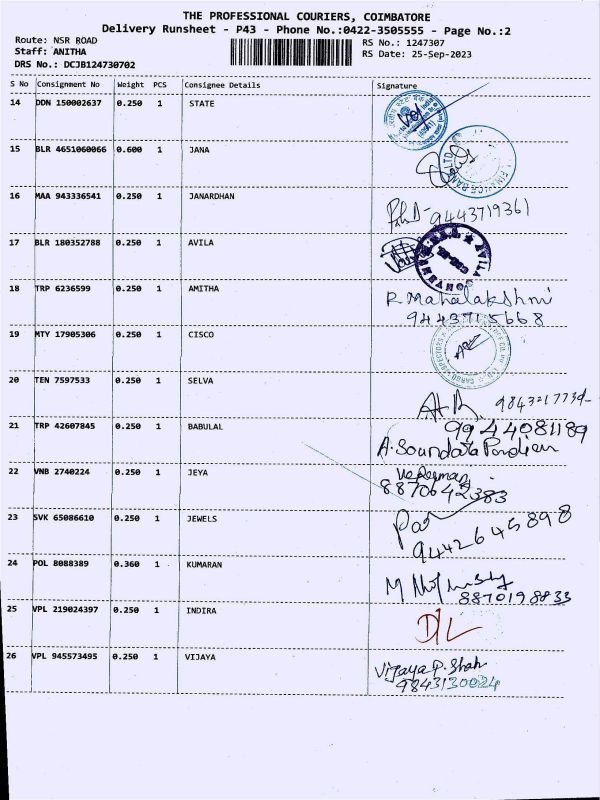 THE PROFESSIONAL COURIERS, COIMBATORE
Delivery Runsheet - P43 - Phone No.:0422-3505555 - Page No.:2
Route: NSR ROAD RS No.: 1247307
Staff: ANITHA RS Date: 25-Sep-2023
DRS No.: DCJB124730702
S No Consignment No Weight PCS Consignee Details Signature
14 DDN 150002637 0.250 1 STATE
15 BLR 4651060066 0.600 1 JANA
16 MAA 943336541 0.250 1 JANARDHAN
9443719361
17 BLR 180352788 0.250 1 AVILA
AVILA CONVENT
18 TRP 6236599 0.250 1 AMITHA
R. Mahalakshmi
9443715668
19 MTY 17905306 0.250 1 CISCO
20 TEN 7597533 0.250 1 SELVA
21 TRP 42607845 0.250 1 BABULAL
9944081189
A. Soundara Pandian
22 VNB 2740224 0.250 1 JEYA
8870642383
23 SVK 65086610 0.250 1 JEWELS
9442645898
24 POL 8088389 0.360 1 KUMARAN
8870198833
25 VPL 219024397 0.250 1 INDIRA
26 VPL 945573495 0.250 1 VIJAYA
Vijaya P. Shah
9843130024